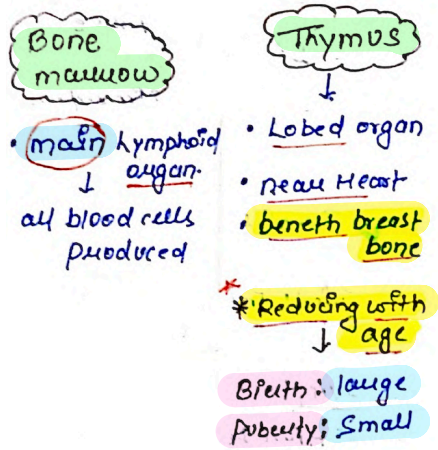 Bone
marrow
• main Lymphoid
organ.
↓
all blood cells
produced
Thymus
↓
• Lobed organ
• near Heart
• beneth breast
bone
* * Reducing with
age
↓
Birth : large
puberty : Small